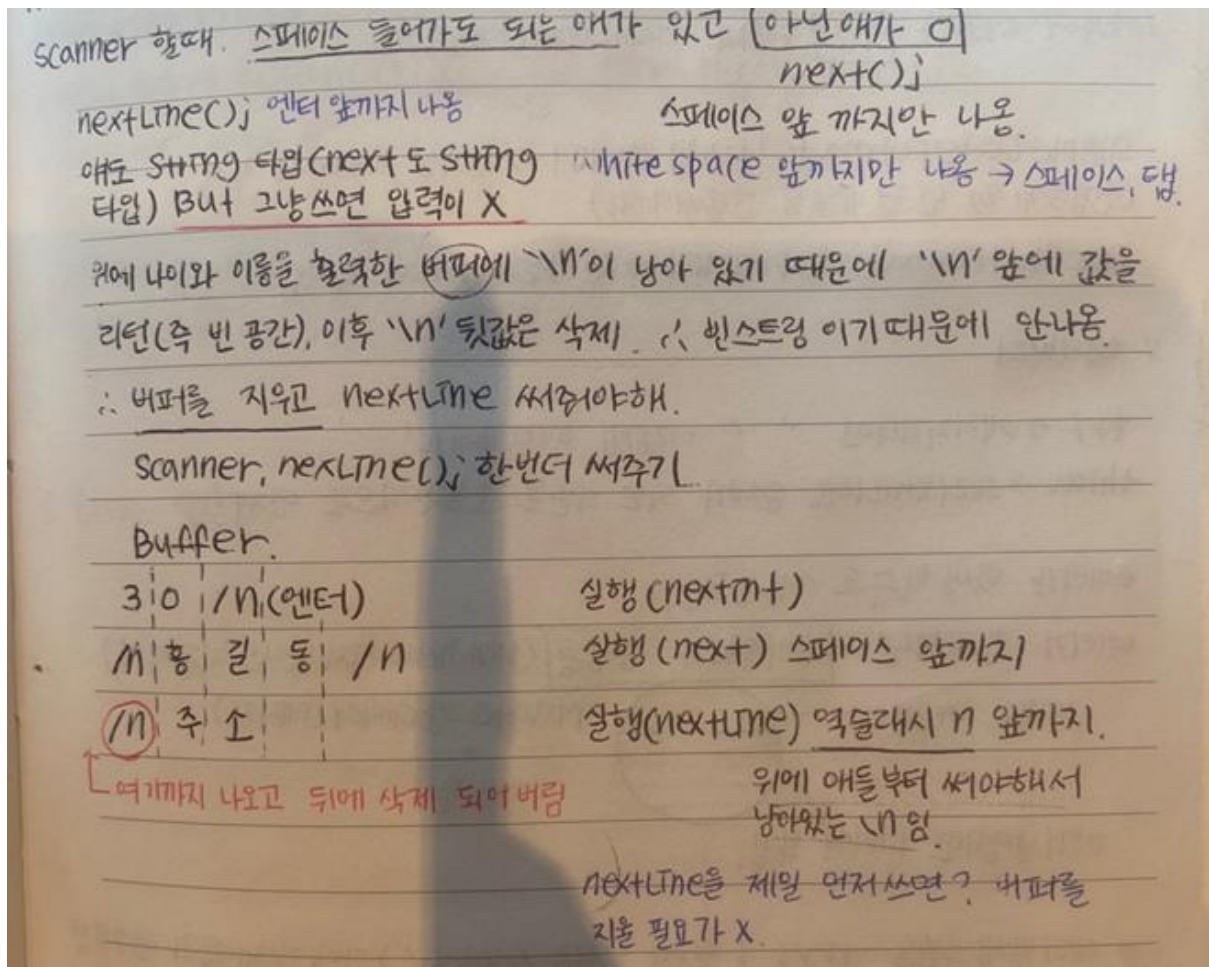 scanner 할때. 스페이스 들어가도 되는 애가 있고 아닌애가 O
next();
nextLine(); 엔터 앞까지 나옹
스페이스 앞 까지만 나옹.
얘도 String 타입(next 도 String
white space 앞까지만 나옹 → 스페이스, 탭.
타입) But 그냥쓰면 입력이 X
위에 나이와 이름을 출력한 버퍼에 '\n'이 남아 있기 때문에 '\n' 앞에 값을
리턴(즉 빈 공간), 이후 '\n' 뒷값은 삭제. ∴ 빈스트링 이기때문에 안나옴.
∴ 버퍼를 지우고 nextLine 써줘야해.
scanner, nexLine(); 한번더 써주기
Buffer.
3 0 /n (엔터) 실행 (nextint)
/n 홍 길 동 /n 실행 (next) 스페이스 앞까지
/n 주 소 실행(nextLine) 역슬대시 n 앞까지.
여기까지 나오고 뒤에 삭제 되어버림
위에 애들부터 써야해서
남아있는 \n 임.
nextLine을 제일 먼저쓰면? 버퍼를
지울 필요가 X.